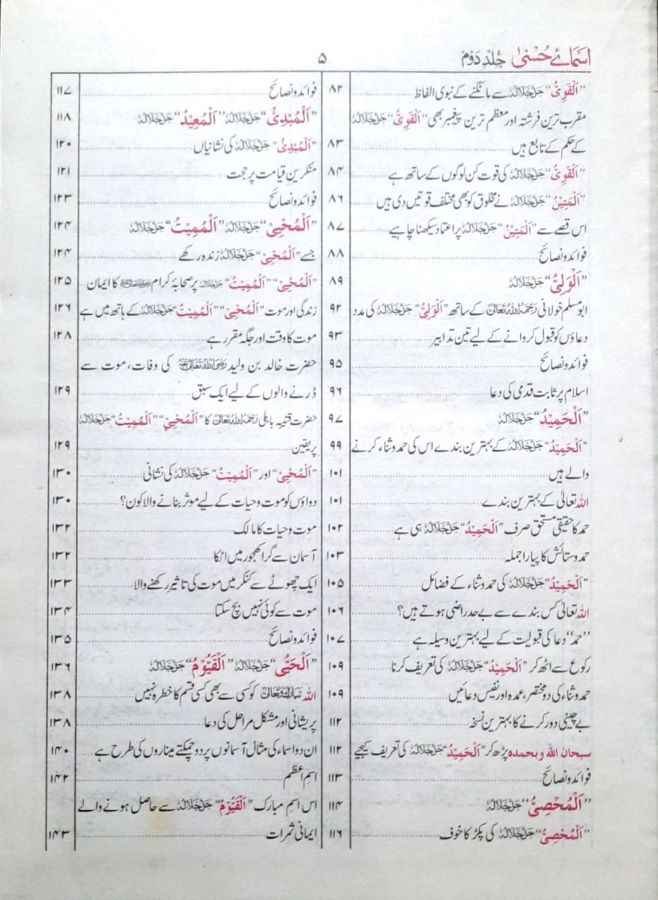 اسمائے حُسنیٰ جلد دوم
۵
”اَلْقَوِیُّ“ جَلَّ جَلَالُہٗ سے مانگنے کے نبوی الفاظ ۸۲
مقرب ترین فرشتہ اور معظم ترین پیغمبر بھی ”اَلْقَوِیُّ“ جَلَّ جَلَالُہٗ
کے حکم کے تابع ہیں ۸۳
”اَلْقَوِیُّ“ جَلَّ جَلَالُہٗ کی قوت کن لوگوں کے ساتھ ہے ۸۴
”اَلْمَتِیْنُ“ جَلَّ جَلَالُہٗ نے مخلوق کو بھی مختلف قوتیں دی ہیں ۸۶
اس قصے سے ”اَلْمَتِیْنُ“ جَلَّ جَلَالُہٗ پر اعتماد سیکھنا چاہیے ۸۷
فوائد و نصائح ۸۸
”اَلْوَلِیُّ“ جَلَّ جَلَالُہٗ ۸۹
ابو مسلم خولانی رَحِمَہُ اللہُ تَعَالٰی کے ساتھ ”اَلْوَلِیُّ“ جَلَّ جَلَالُہٗ کی مدد ۹۲
دعاؤں کو قبول کروانے کے لیے تین تدابیر ۹۳
فوائد و نصائح ۹۵
اسلام پر ثابت قدمی کی دعا ۹۶
”اَلْحَمِیْدُ“ جَلَّ جَلَالُہٗ ۹۷
”اَلْحَمِیْدُ“ جَلَّ جَلَالُہٗ کے بہترین بندے اس کی حمد و ثناء کرنے ۹۹
والے ہیں ۱۰۱
اللہ تعالیٰ کے بہترین بندے ۱۰۱
حمد کا حقیقی مستحق صرف ”اَلْحَمِیْدُ“ جَلَّ جَلَالُہٗ ہی ہے ۱۰۲
حمد و ستائش کا پیارا جملہ ۱۰۳
”اَلْحَمِیْدُ“ جَلَّ جَلَالُہٗ کی حمد و ثناء کے فضائل ۱۰۵
اللہ تعالیٰ کس بندے سے بے حد راضی ہوتے ہیں؟ ۱۰۶
”حمد“ دعا کی قبولیت کے لیے بہترین وسیلہ ہے ۱۰۷
رکوع سے اٹھ کر ”اَلْحَمِیْدُ“ جَلَّ جَلَالُہٗ کی تعریف کرنا ۱۰۹
حمد و ثناء کی دو مختصر، عمدہ اور نفیس دعائیں ۱۰۹
بے چینی دور کرنے کا بہترین نسخہ ۱۱۲
سبحان اللہ وبحمدہ پڑھ کر ”اَلْحَمِیْدُ“ جَلَّ جَلَالُہٗ کی تعریف کیجیے ۱۱۲
فوائد و نصائح ۱۱۳
”اَلْمُحْصِیُّ“ جَلَّ جَلَالُہٗ ۱۱۴
”اَلْمُحْصِیُّ“ جَلَّ جَلَالُہٗ کی پکڑ کا خوف ۱۱۶
فوائد و نصائح ۱۱۷
”اَلْمُبْدِیُٔ“ جَلَّ جَلَالُہٗ ”اَلْمُعِیْدُ“ جَلَّ جَلَالُہٗ ۱۱۸
”اَلْمُبْدِیُٔ“ جَلَّ جَلَالُہٗ کی نشانیاں ۱۲۰
منکرین قیامت پر حجت ۱۲۱
فوائد و نصائح ۱۲۳
”اَلْمُحْیِیْ“ جَلَّ جَلَالُہٗ ”اَلْمُمِیْتُ“ جَلَّ جَلَالُہٗ ۱۲۴
جسے ”اَلْمُحْیِیْ“ جَلَّ جَلَالُہٗ زندہ رکھے ۱۲۴
”اَلْمُحْیِیْ“ ”اَلْمُمِیْتُ“ جَلَّ جَلَالُہٗ پر صحابۂ کرام کا ایمان ۱۲۵
زندگی اور موت ”اَلْمُحْیِیْ“ ”اَلْمُمِیْتُ“ جَلَّ جَلَالُہٗ کے ہاتھ میں ہے ۱۲۶
موت کا وقت اور جگہ مقرر ہے ۱۲۸
حضرت خالد بن ولید رَضِیَ اللہُ تَعَالٰی عَنْہُ کی وفات، موت سے
ڈرنے والوں کے لیے ایک سبق ۱۲۹
حضرت قتیبہ باہلی رَحِمَہُ اللہُ تَعَالٰی کا ”اَلْمُحْیِیْ“ ”اَلْمُمِیْتُ“ جَلَّ جَلَالُہٗ
پر یقین ۱۲۹
”اَلْمُحْیِیْ“ اور ”اَلْمُمِیْتُ“ جَلَّ جَلَالُہٗ کی نشانی ۱۳۰
دواؤں کو موت و حیات کے لیے موثر بنانے والا کون؟ ۱۳۰
موت و حیات کا مالک ۱۳۲
آسمان سے گرا کھجور میں اٹکا ۱۳۲
ایک چھوٹے سے کنکر میں موت کی تاثیر رکھنے والا ۱۳۳
موت سے کوئی نہیں بچ سکتا ۱۳۴
فوائد و نصائح ۱۳۵
”اَلْحَیُّ“ جَلَّ جَلَالُہٗ ”اَلْقَیُّوْمُ“ جَلَّ جَلَالُہٗ ۱۳۶
اللہ تَبَارَکَ وَتَعَالٰی کو کسی سے بھی کسی قسم کا خطرہ نہیں ۱۳۸
پریشانی اور مشکل مراحل کی دعا ۱۳۸
ان دو اسماء کی مثال آسمانوں پر دو چمکتے میناروں کی طرح ہے ۱۴۰
اسم اعظم ۱۴۲
اس اسم مبارک ”اَلْقَیُّوْمُ“ جَلَّ جَلَالُہٗ سے حاصل ہونے والے
ایمانی ثمرات ۱۴۳